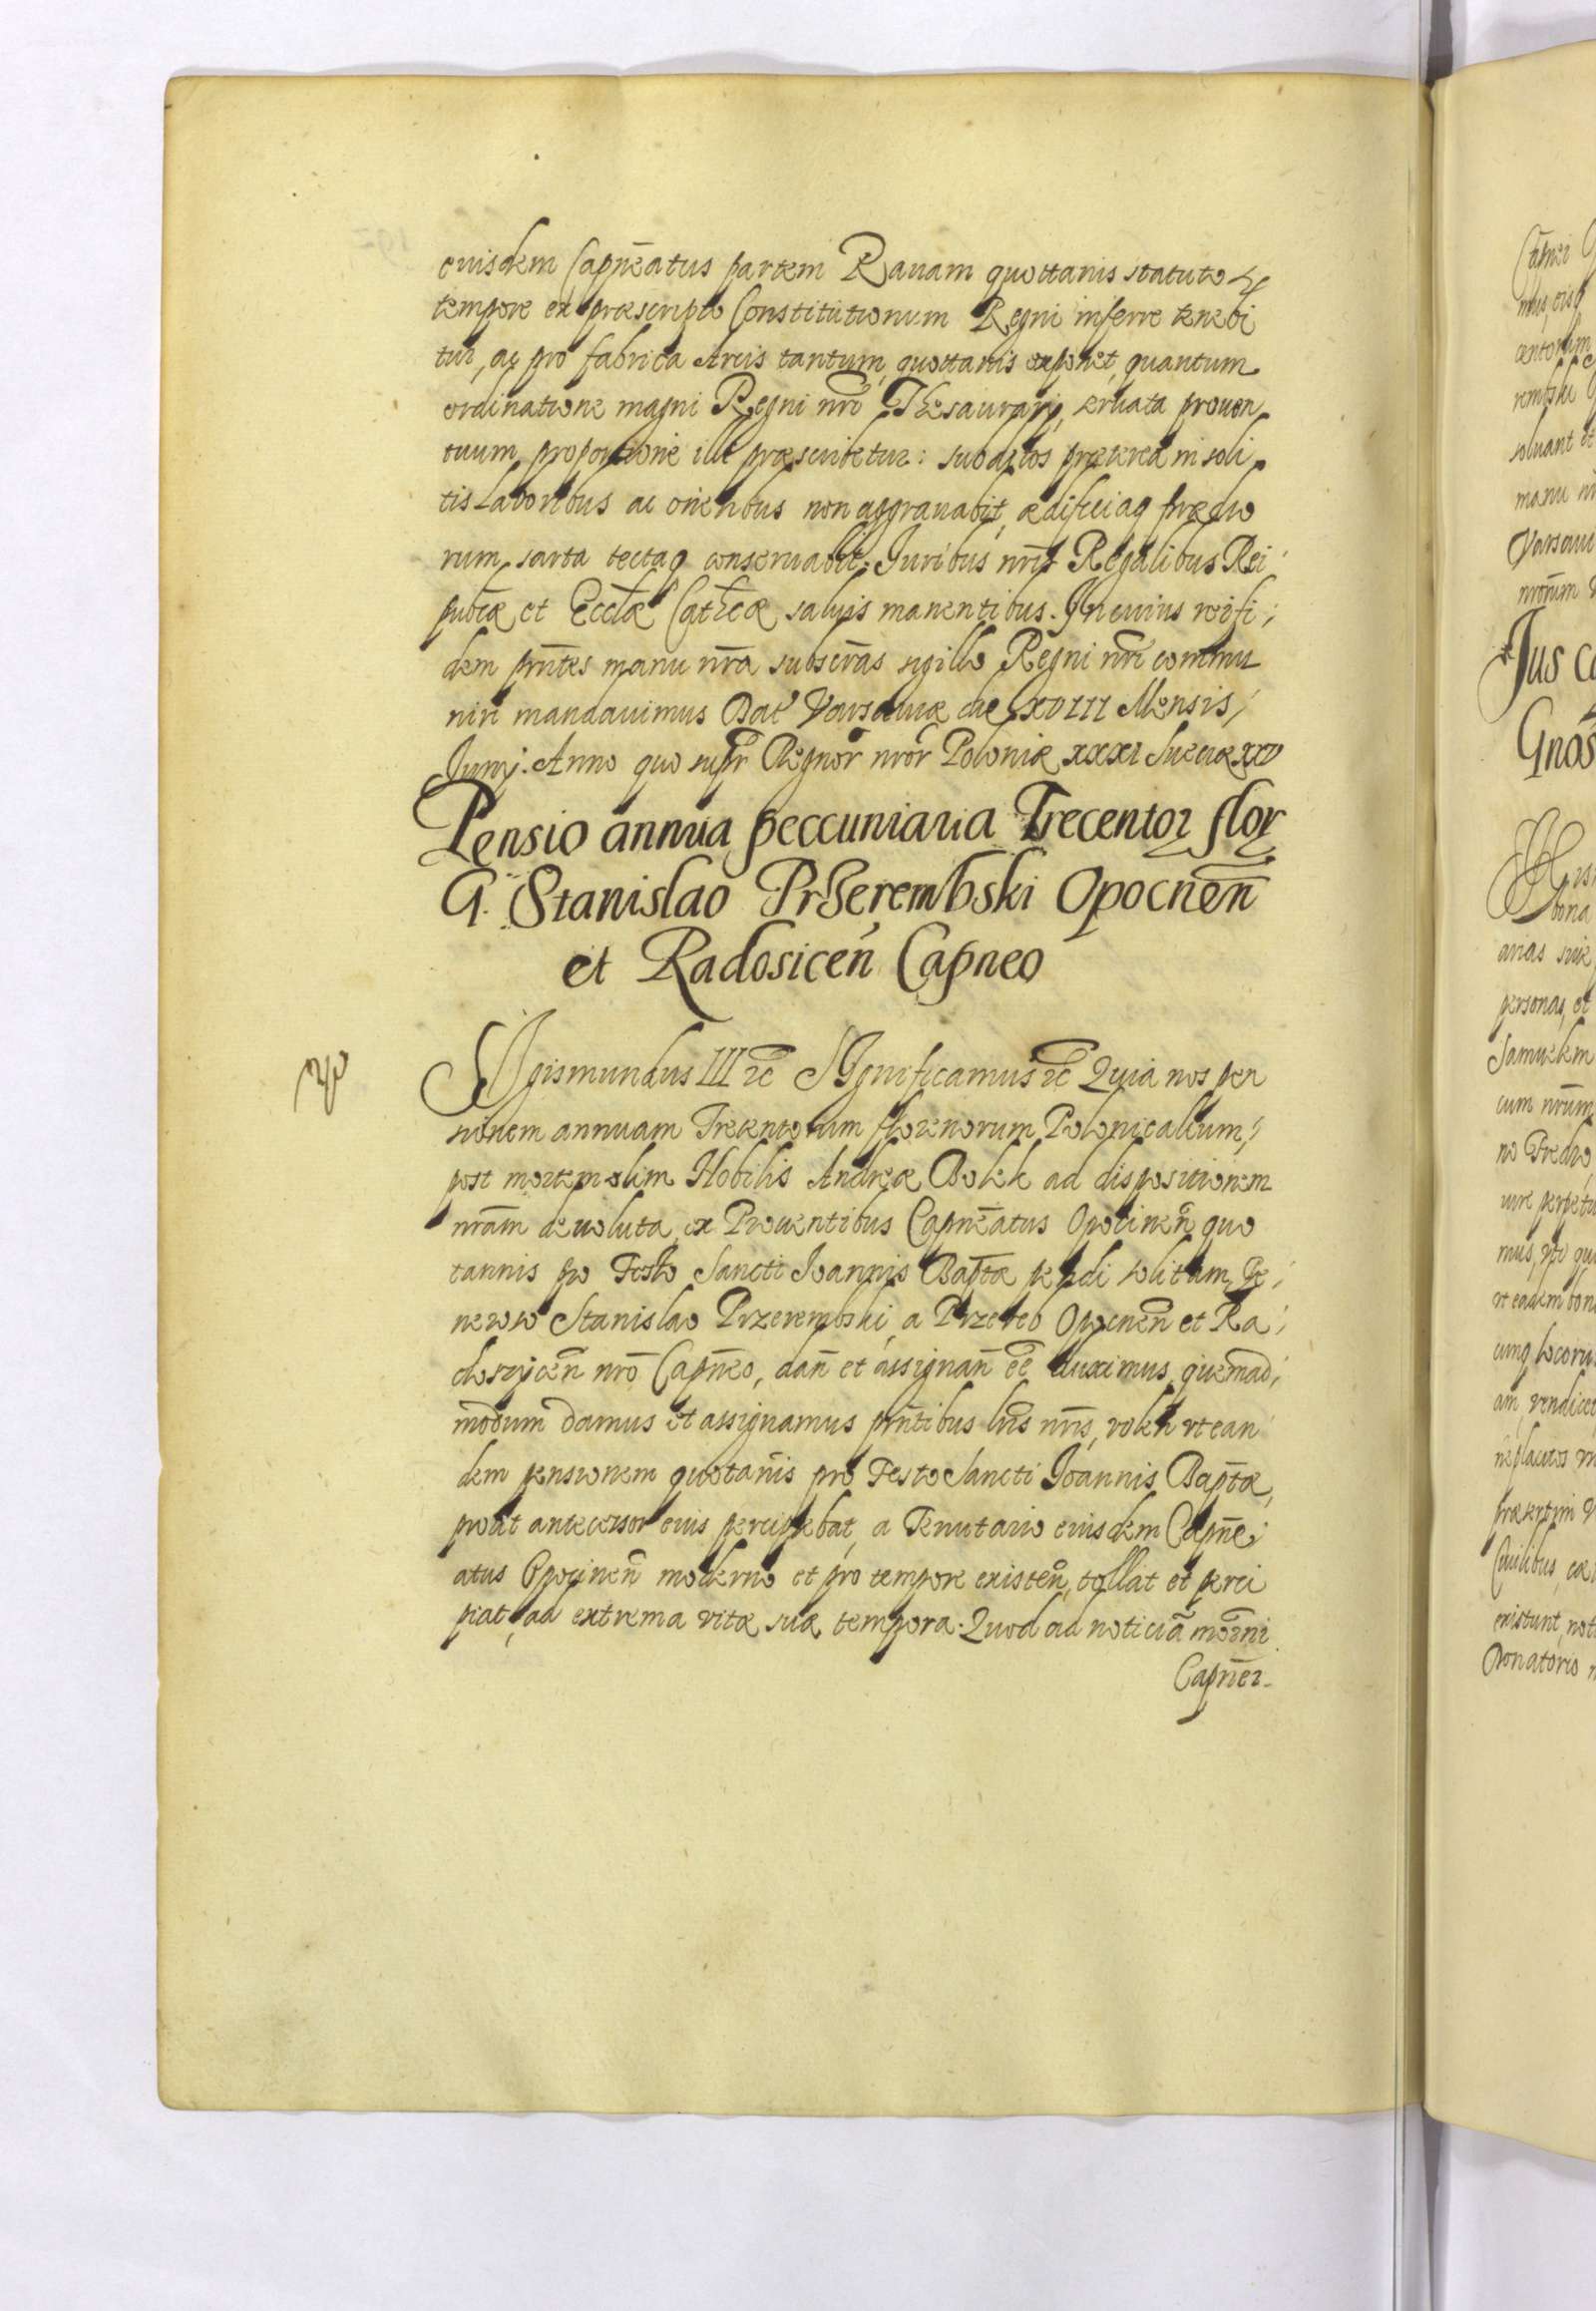 euisdem Capn̄eatus partem Rauam quottanis statuto
tempore ex præscripto Constitutionum Regni inferre tenebi
tur, ac pro fabrica Arcis tantum, quottanis exponet, quantum
ordinatione magni Regni nr̄i Thesaurarij, seruata prouen
tuum proportione illi præscribetur: subditos præterea insoli
tis laboribus ac oneribus non aggrauabit, ædificiaq prædio
rum sarta tectaq conseruabit. Juribus nr̄is Regalibus Rei
pub̄cæ et Eccl̄æ Cath̄cæ saluis manentibus. In cuius rei fi
dem pn̄tes manu nr̄a subscr̄as sigillo Regni nr̄i commu
niri mandauimus Dat Varsauiæ die XVIII Mensis
Junij. Anno quo supr Regnor nror Poloniæ xxxi Sueciæ xxv
Pensio annua peccuniaria Trecentor flor
G. Stanislao Przerembski Opocnen̄
et Radosicen̄ Capneo
SIgismundus III etc̄ SIgnificamus etc̄ Quia nos pen
sionem annuam Trecentorum florenorum Polonicalium,
post mortem olim Nobilis Andreæ Bolek ad dispositionem
nr̄am deuoluta, ex Prouentibus Capn̄eatus Opocinen̄ quo
tannis pro Festo Sancti Ioannis Bap̄tæ pendi solitam, Ge
neroso Stanislao Przerembski, a Przereb Opocnen̄ et Ra
doszycen̄ nr̄o Capn̄eo, dan̄ et assignan̄ ēe duximus, quemad
modum damus et assignamus pn̄tibus lr̄is nr̄is, volen̄ vt ean
dem pensionem quotan̄is pro Festo Sancti Joannis Bap̄tæ,
prout antecessor eius percipiebat, a Tenutario eiusdem Capn̄e
atus Opocinen̄ moderno et pro tempore existen̄, tollat et perci
piat, ad extrema vitæ suæ tempora. Quod ad noticiā moderni
Capn̄ei